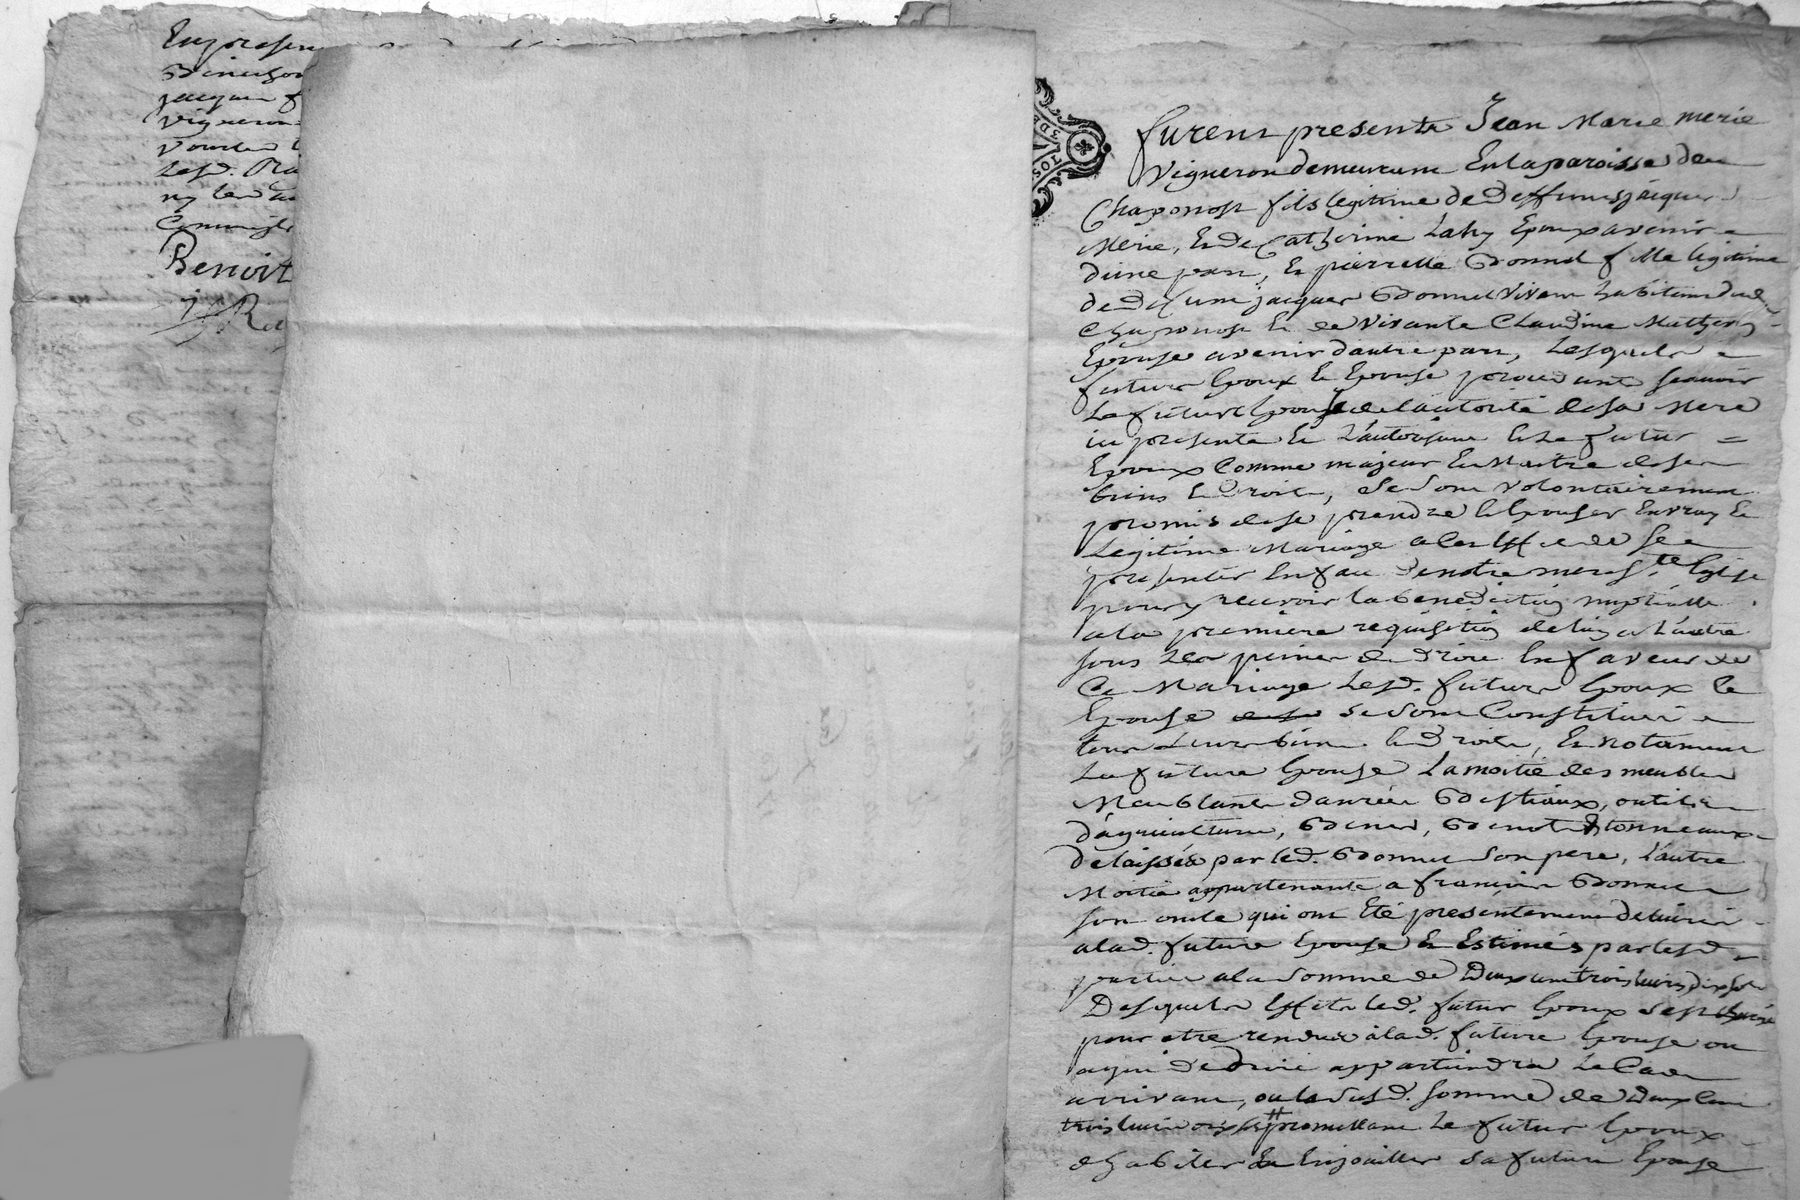 En presen
jacques f
vigneron
Lesd.
Benoit
DE
TOS
furent presents Jean Marie merie
Vigneron demeurant En la paroisse de
Chaponost fils legitime de deffunts jacques
Merie, Et de Catherine Laby Epoux avenir
dune part, Et pierrette Bonnet fille legitime
de deffunt jacques Bonnet vivant habitant dud.
Chaponost Et de vivante Claudine Mathery
Epouse avenir dautre part, Lesquels
futurs Epoux Et Epouse procedants scavoir
La future Epouse de l'autorité de sa Mere
icy presente Et L'autorisant Et Le futur
Epoux Comme majeur Et Maitre de ses
biens Et Droits, se sont volontairement
promis de se prendre Et Epouser En vray Et
Legitime Mariage a Cet Effet de se
presenter En face de notre mere Ste Eglise
pour y recevoir la benediction nuptialle
a la premiere requisition de lun a L'autre
sous Les peines de Droit En faveur de
Ce Mariage Lesd. futurs Epoux Et
Epouse se sont Constitués
tous Leurs biens Et Droits, Et notamment
La future Epouse La moitié des meubles
Meublants danrées Bestiaux, outils
d'agriculture, Benes, Benots Et tonneaux
delaissés par led. Bonnet son pere, L'autre
Moitié appartenante a francois Bonnet
son oncle qui ont Eté presentement delivrés
a lad. future Epouse Et Estimés par lesd.
parties a la somme de Deux cent trois livres dix sols
Desquels Effets led. futur Epoux s'est chargé
pour etre rendus à lad. future Epouse ou
a qui de droit appartiendra Le Cas
arrivant, ou la susd. somme de Deux Cent
trois livres dix s. promettant Le futur Epoux
d'habiller Et Enjoailler sa future Epouse